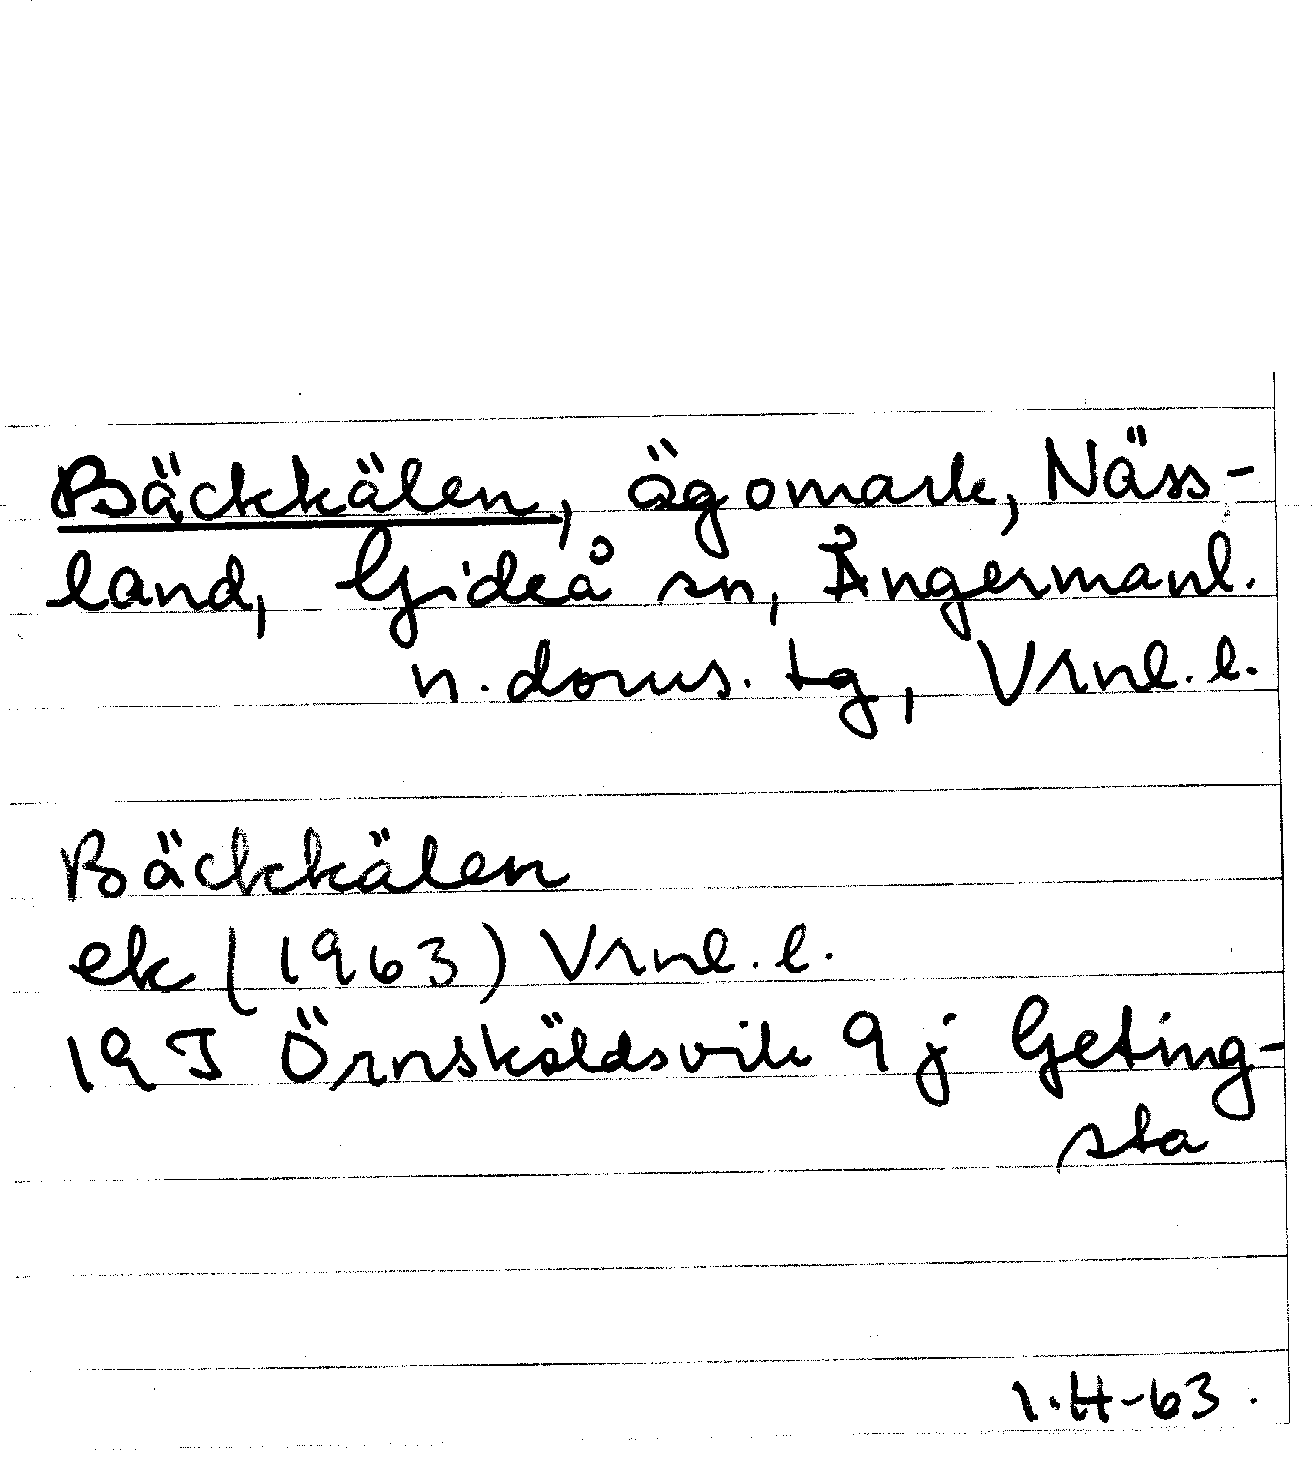 Bäckkälen, ägomark, Näss-
land, Gideå sn, Ångermanl.
n. doms. tg, Vrnl. l.
Bäckkälen
ek (1963) Vrnl. l.
19J Örnsköldsvik 9j Geting-
sta
I.H-63.